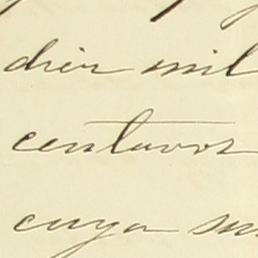 diez mil
centavos
cuya su